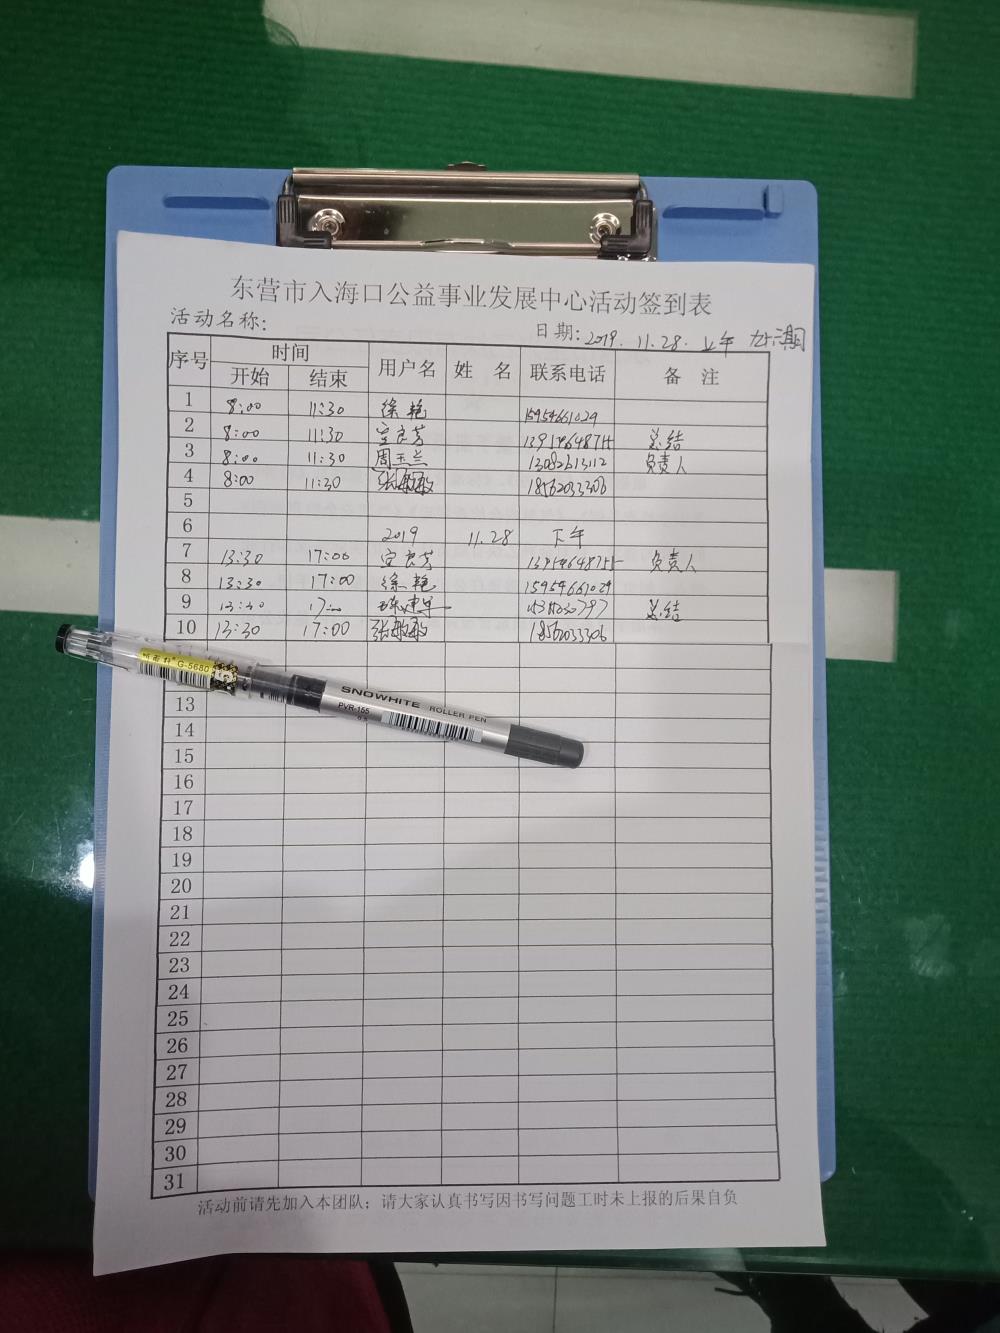 东营市入海口公益事业发展中心活动签到表
活动名称: 日期: 2019. 11.28. 上午
序号 时间 用户名 姓 名 联系电话 备 注
开始 结束
1 8:00 11:30 徐艳 15954661029
2 8:00 11:30 良芳 总结
3 8:00 11:30 周玉兰 13082613112 负责人
4 8:00 11:30 张敏敏 18562033306
5
6 2019 11.28 下午
7 13:30 17:00 良芳 负责人
8 13:30 17:00 徐艳 15954661029
9 13:30 总结
10 13:30 17:00 张敏敏 18562033306
G-5680
SNOWHITE ROLLER PEN
PVR-155 0.5
13
14
15
16
17
18
19
20
21
22
23
24
25
26
27
28
29
30
31
活动前请先加入本团队；请大家认真书写因书写问题工时未上报的后果自负